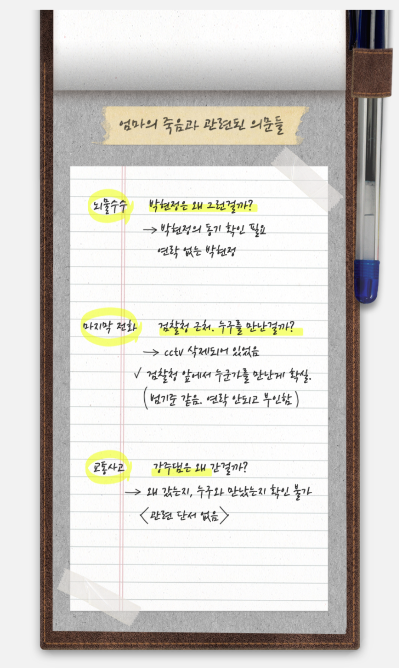 엄마의 죽음과 관련된 의문들
뇌물수수 박현정은 왜 그런걸까?
→ 박현정의 동기 확인 필요
연락 없는 박현정
마지막 전화 검찰청 근처. 누구를 만난걸까?
→ cctv 삭제되어 있었음
√ 검찰청 앞에서 누군가를 만난게 확실.
(범기준 같음. 연락 안되고 부인함)
교통사고 강주댐은 왜 간걸까?
→ 왜 갔는지, 누구와 만났는지 확인 불가
<관련 단서 없음>